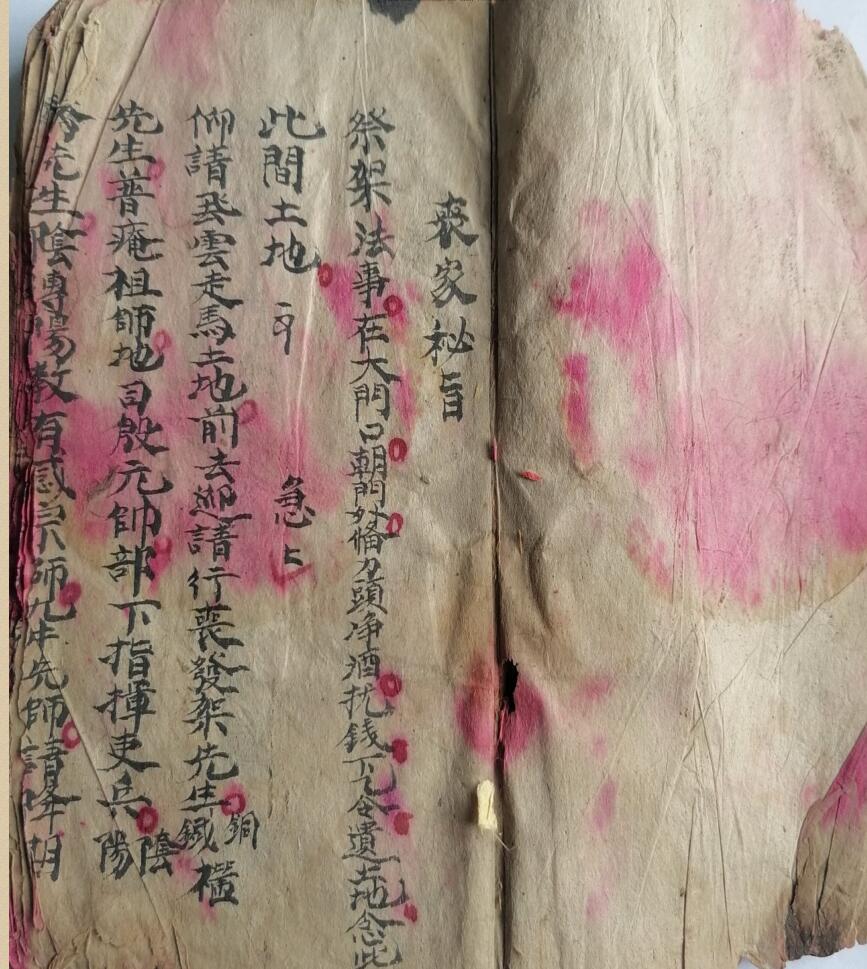 喪家秘旨
祭架法事在大門口朝門外俻刀頭净酒扰錢下令遣土地念此
此間土地 急
仰請飛雲走馬土地前去迎請行喪發架先生銅鐵
先生普庵祖師地司殷元帥部下指揮吏兵陰陽
先生陰傳陽教有感宗師九牛先師請降